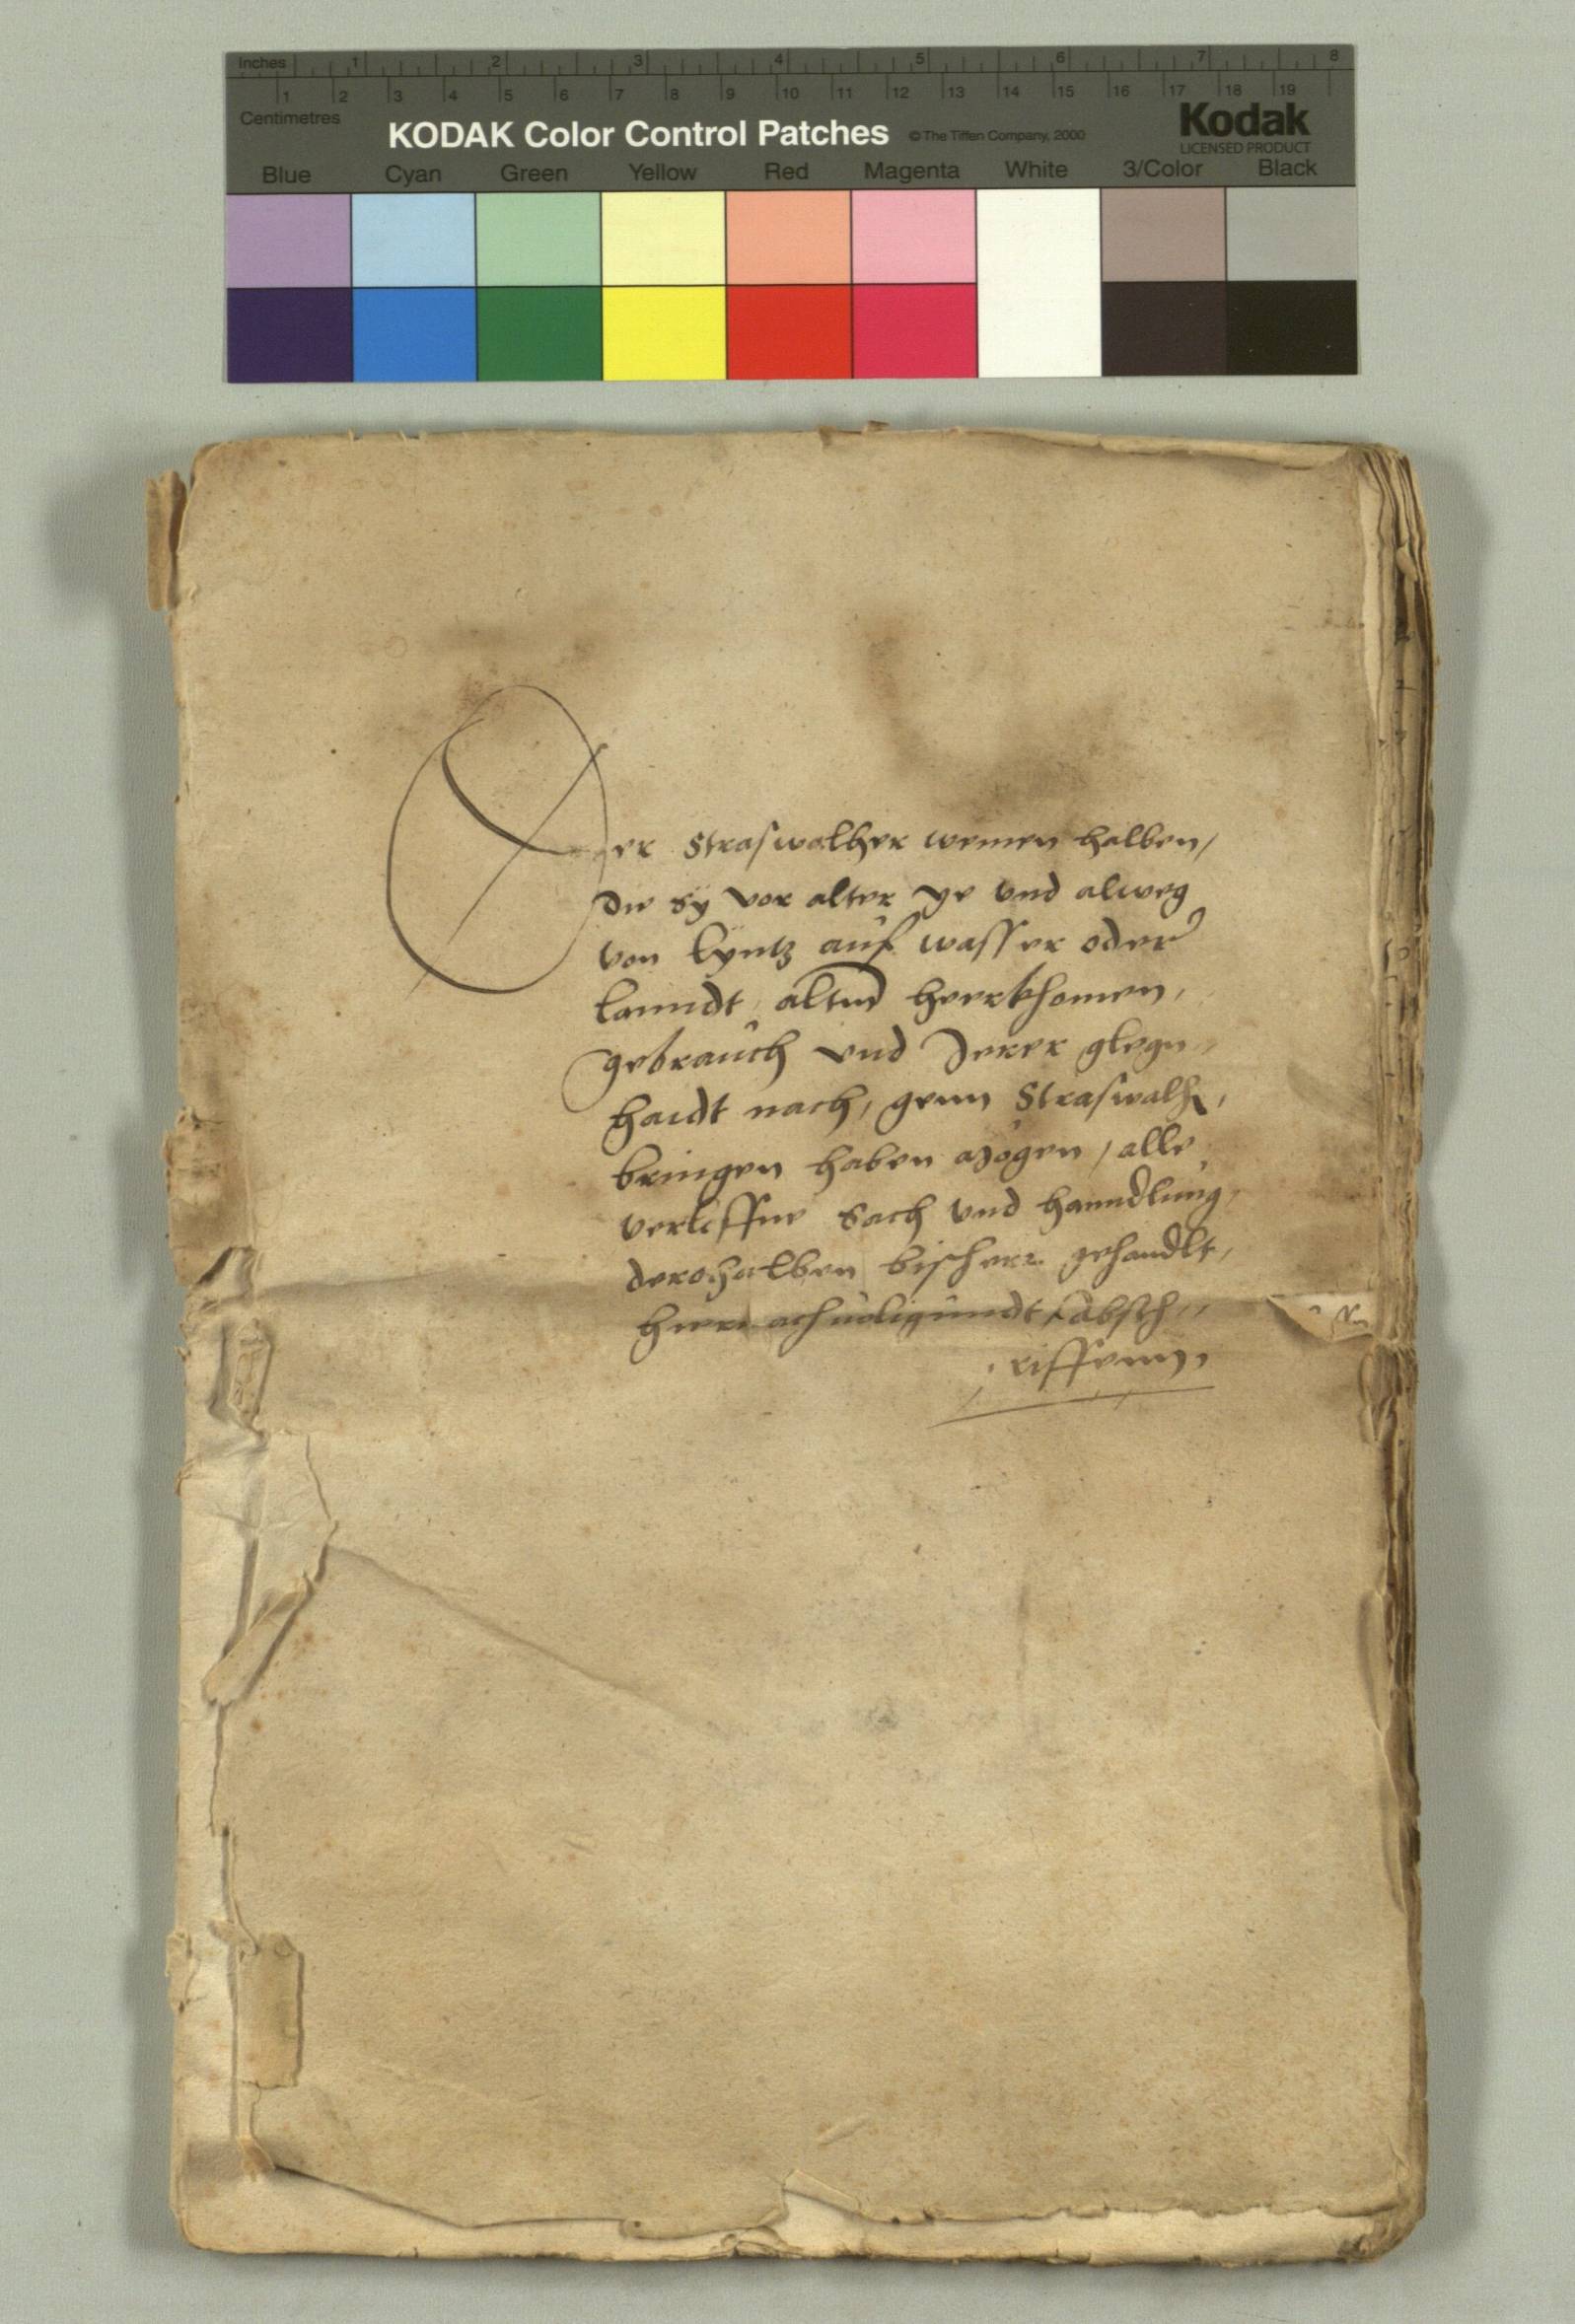 Inches 1 2 3 4 5 6 7 8
1 2 3 4 5 6 7 8 9 10 11 12 13 14 15 16 17 18 19
Centimetres
KODAK Color Control Patches © The Tiffen Company, 2000 Kodak
LICENSED PRODUCT
Blue Cyan Green Yellow Red Magenta White 3/Color Black
Der Straswalher weinen halben,
die sy vor alter ye vnd alweg
von Lyntz auf wasser oder
lanndt altem heerkhomen,
gebrauch vnd Jerer glegn
haidt nach, genn Straswalh,
bringen haben mögen, alle
verloffne Sach vnd hanndlung
derohalben bisheer gehandlt,
hiernachuoligundt absch
rifften,